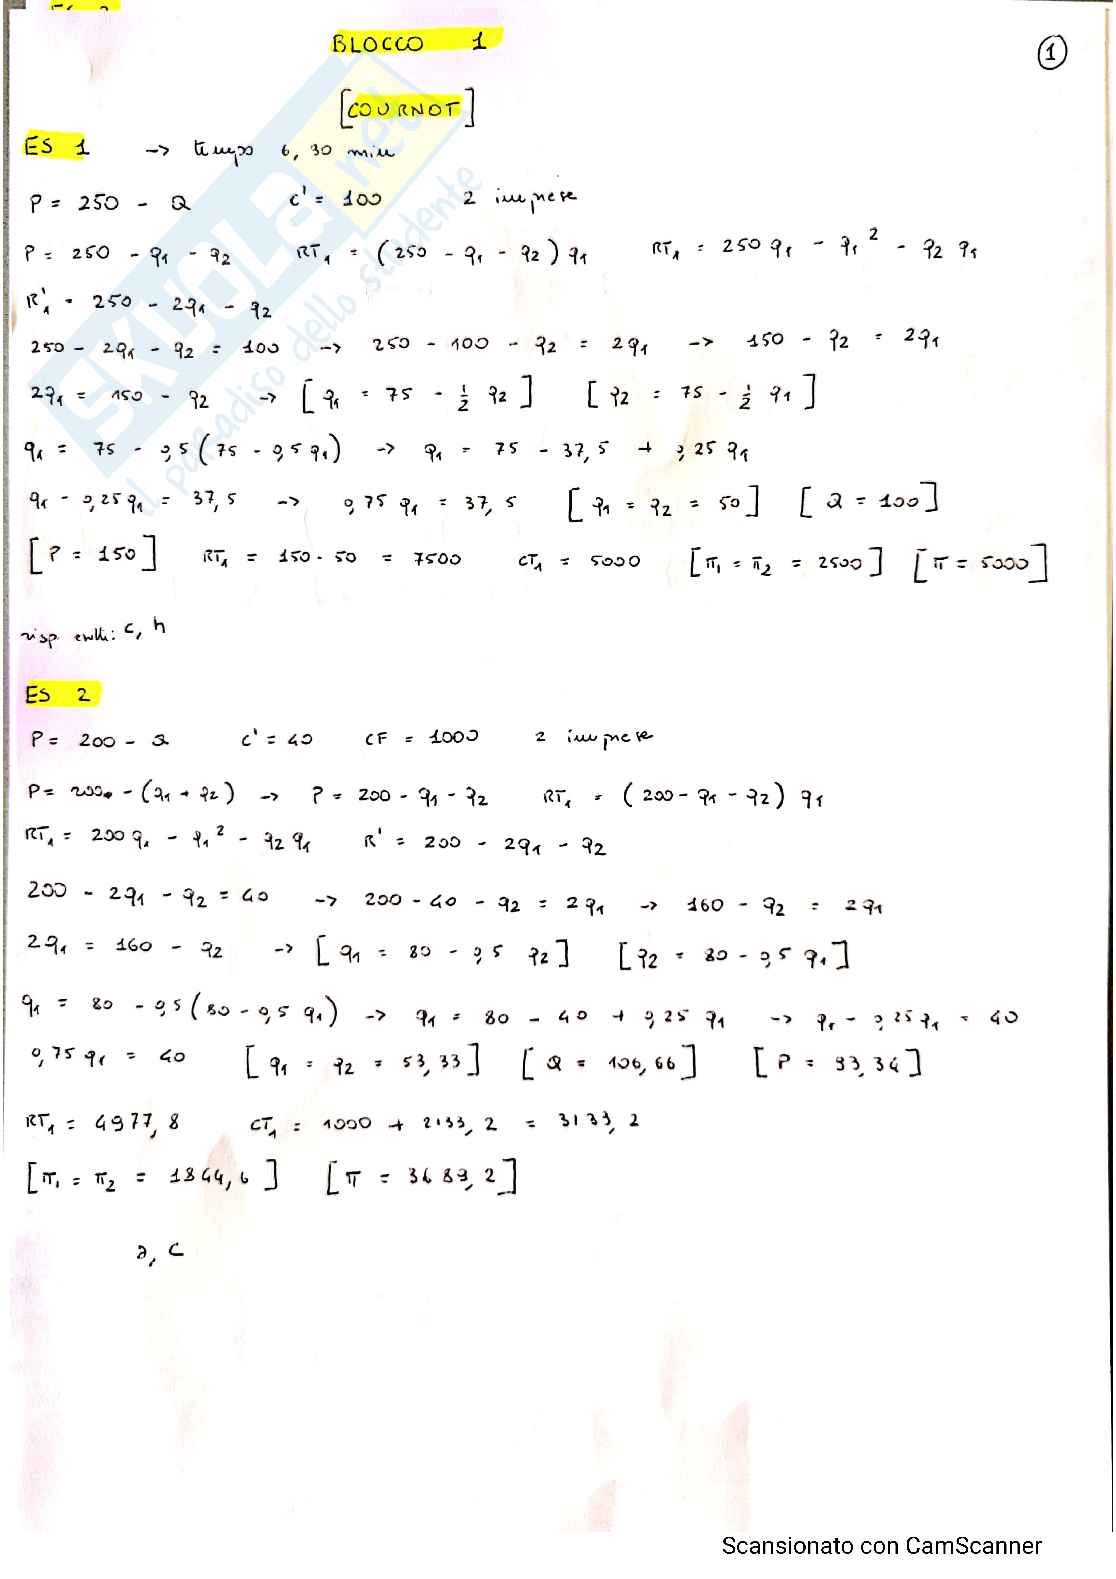 BLOCCO 1
1
[COURNOT]
ES 1 -> tempo 6,30 min
P = 250 - Q C' = 100 2 imprese
P = 250 - q1 - q2 RT1 = (250 - q1 - q2) q1 RT1 = 250 q1 - q1² - q2 q1
R'1 = 250 - 2q1 - q2
250 - 2q1 - q2 = 100 -> 250 - 100 - q2 = 2q1 -> 150 - q2 = 2q1
2q1 = 150 - q2 -> [q1 = 75 - 1/2 q2] [q2 = 75 - 1/2 q1]
q1 = 75 - 0,5(75 - 0,5 q1) -> q1 = 75 - 37,5 + 0,25 q1
q1 - 0,25 q1 = 37,5 -> 0,75 q1 = 37,5 [q1 = q2 = 50] [Q = 100]
[P = 150] RT1 = 150 · 50 = 7500 CT1 = 5000 [π1 = π2 = 2500] [π = 5000]
risp. c, h
ES 2
P = 200 - Q C' = 40 CF = 1000 2 imprese
P = 200 - (q1 + q2) -> P = 200 - q1 - q2 RT1 = (200 - q1 - q2) q1
RT1 = 200 q1 - q1² - q2 q1 R' = 200 - 2q1 - q2
200 - 2q1 - q2 = 40 -> 200 - 40 - q2 = 2q1 -> 160 - q2 = 2q1
2q1 = 160 - q2 -> [q1 = 80 - 0,5 q2] [q2 = 80 - 0,5 q1]
q1 = 80 - 0,5(80 - 0,5 q1) -> q1 = 80 - 40 + 0,25 q1 -> q1 - 0,25 q1 = 40
0,75 q1 = 40 [q1 = q2 = 53,33] [Q = 106,66] [P = 93,34]
RT1 = 4977,8 CT1 = 1000 + 2133,2 = 3133,2
[π1 = π2 = 1844,6] [π = 3689,2]
a, c
SKUOLA.net
il paradiso dello studente
Scansionato con CamScanner